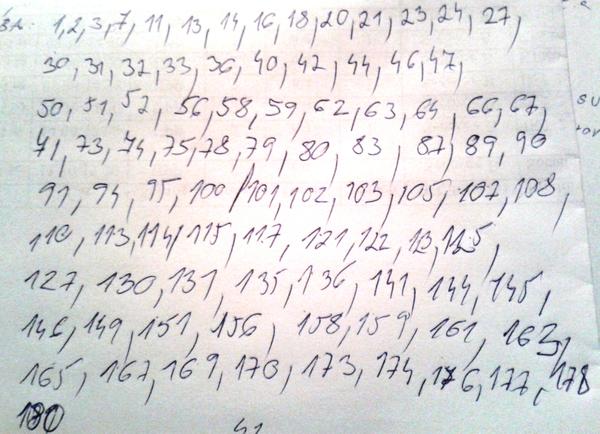 1, 2, 3, 7, 11, 13, 14, 16, 18, 20, 21, 23, 24, 27,
30, 31, 32, 33, 36, 40, 42, 44, 46, 47,
50, 51, 52, 56, 58, 59, 62, 63, 64, 66, 67,
71, 73, 74, 75, 78, 79, 80, 83, 87, 89, 90
91, 94, 95, 100, 101, 102, 103, 105, 107, 108,
110, 113, 114, 115, 117, 121, 122, 125,
127, 130, 131, 135, 136, 141, 144, 145,
146, 149, 151, 156, 158, 159, 161, 163,
165, 167, 169, 170, 173, 174, 176, 177, 178